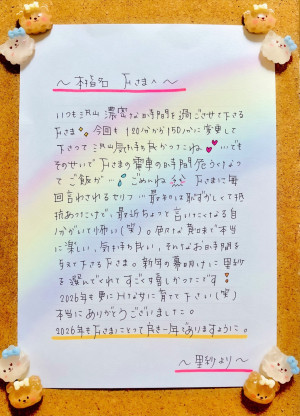 ～本指名 Fさまへ～
いつも沢山 濃密な時間を過ごさせて下さる
Fさま 今回も 120分から150分に変更して
下さって 沢山気持ち良かったね ...でも
そのせいで Fさまの電車の時間危うくなっ
て ご飯が... ごめんね Fさまに毎
回言わされるセリフ...最初は恥ずかしくて抵
抗あったけど、最近ちょっと言いたくなる自
分がいて怖い(笑) 色んな意味で本当
に楽しい、気持ち良い、そんなお時間を
与えて下さるFさま。新年の幕明けに 里紗
を選んでくれて すごく嬉しかったです
2026年も更にHな女に育てて下さい(笑)
本当にありがとうございました。
2026年もFさまにとって良き一年でありますように。
～里紗より～